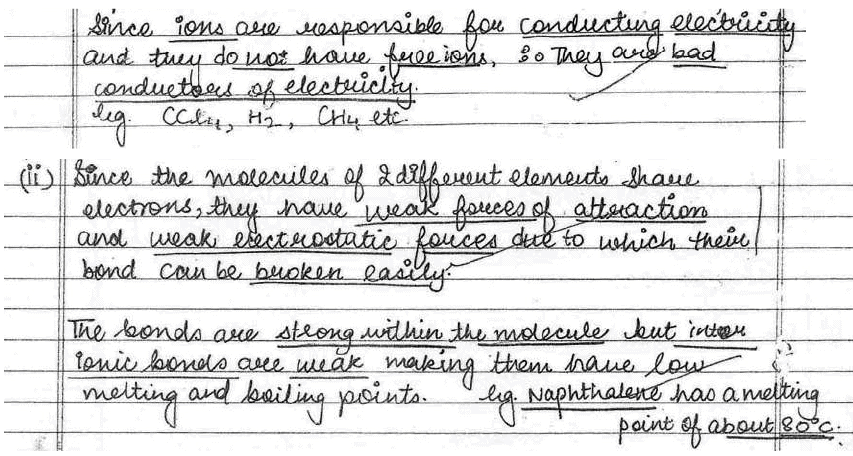 Since ions are responsible for conducting electricity
and they do not have free ions, so They are bad
conductors of electricity.
eg. CCl4, H2, CH4 etc.
(ii) Since the molecules of 2 different elements share
electrons, they have weak forces of attraction
and weak electrostatic forces due to which their
bond can be broken easily.
The bonds are strong within the molecule but inter
ionic bonds are weak making them have low
melting and boiling points. eg. Naphthalene has a melting
point of about 80°C.